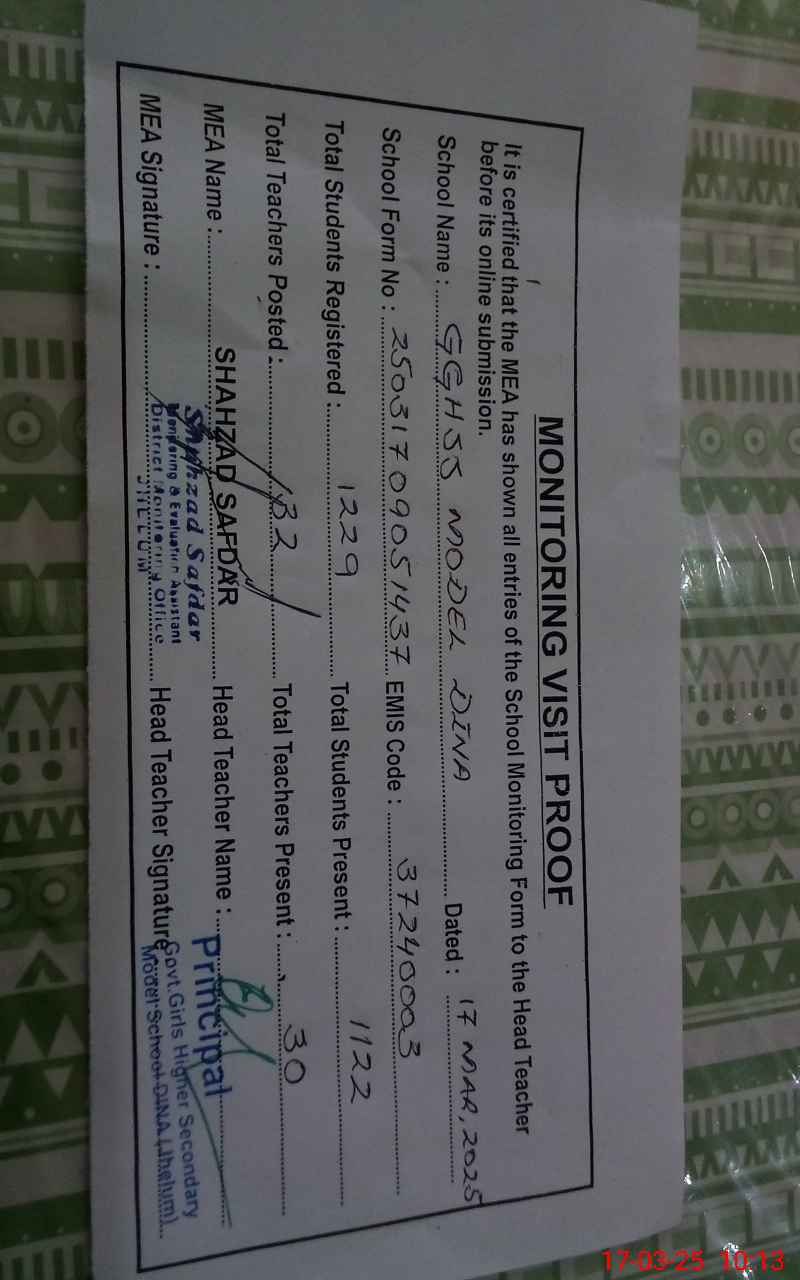 MONITORING VISIT PROOF
It is certified that the MEA has shown all entries of the School Monitoring Form to the Head Teacher
before its online submission.
School Name : GGHSS MODEL DINA Dated : 17 MAR, 2025
School Form No : 25031709051437 EMIS Code : 37240003
Total Students Registered : 1229 Total Students Present : 1122
Total Teachers Posted : 32 Total Teachers Present : 30
MEA Name : SHAHZAD SAFDAR Head Teacher Name : Principal
MEA Signature : Shahzad Safdar Head Teacher Signature Govt.Girls Higher Secondary
Monitoring & Evaluation Assistant Model School DINA (Jhelum)
District Monitoring Office
JHELUM
17-03-25 10:13